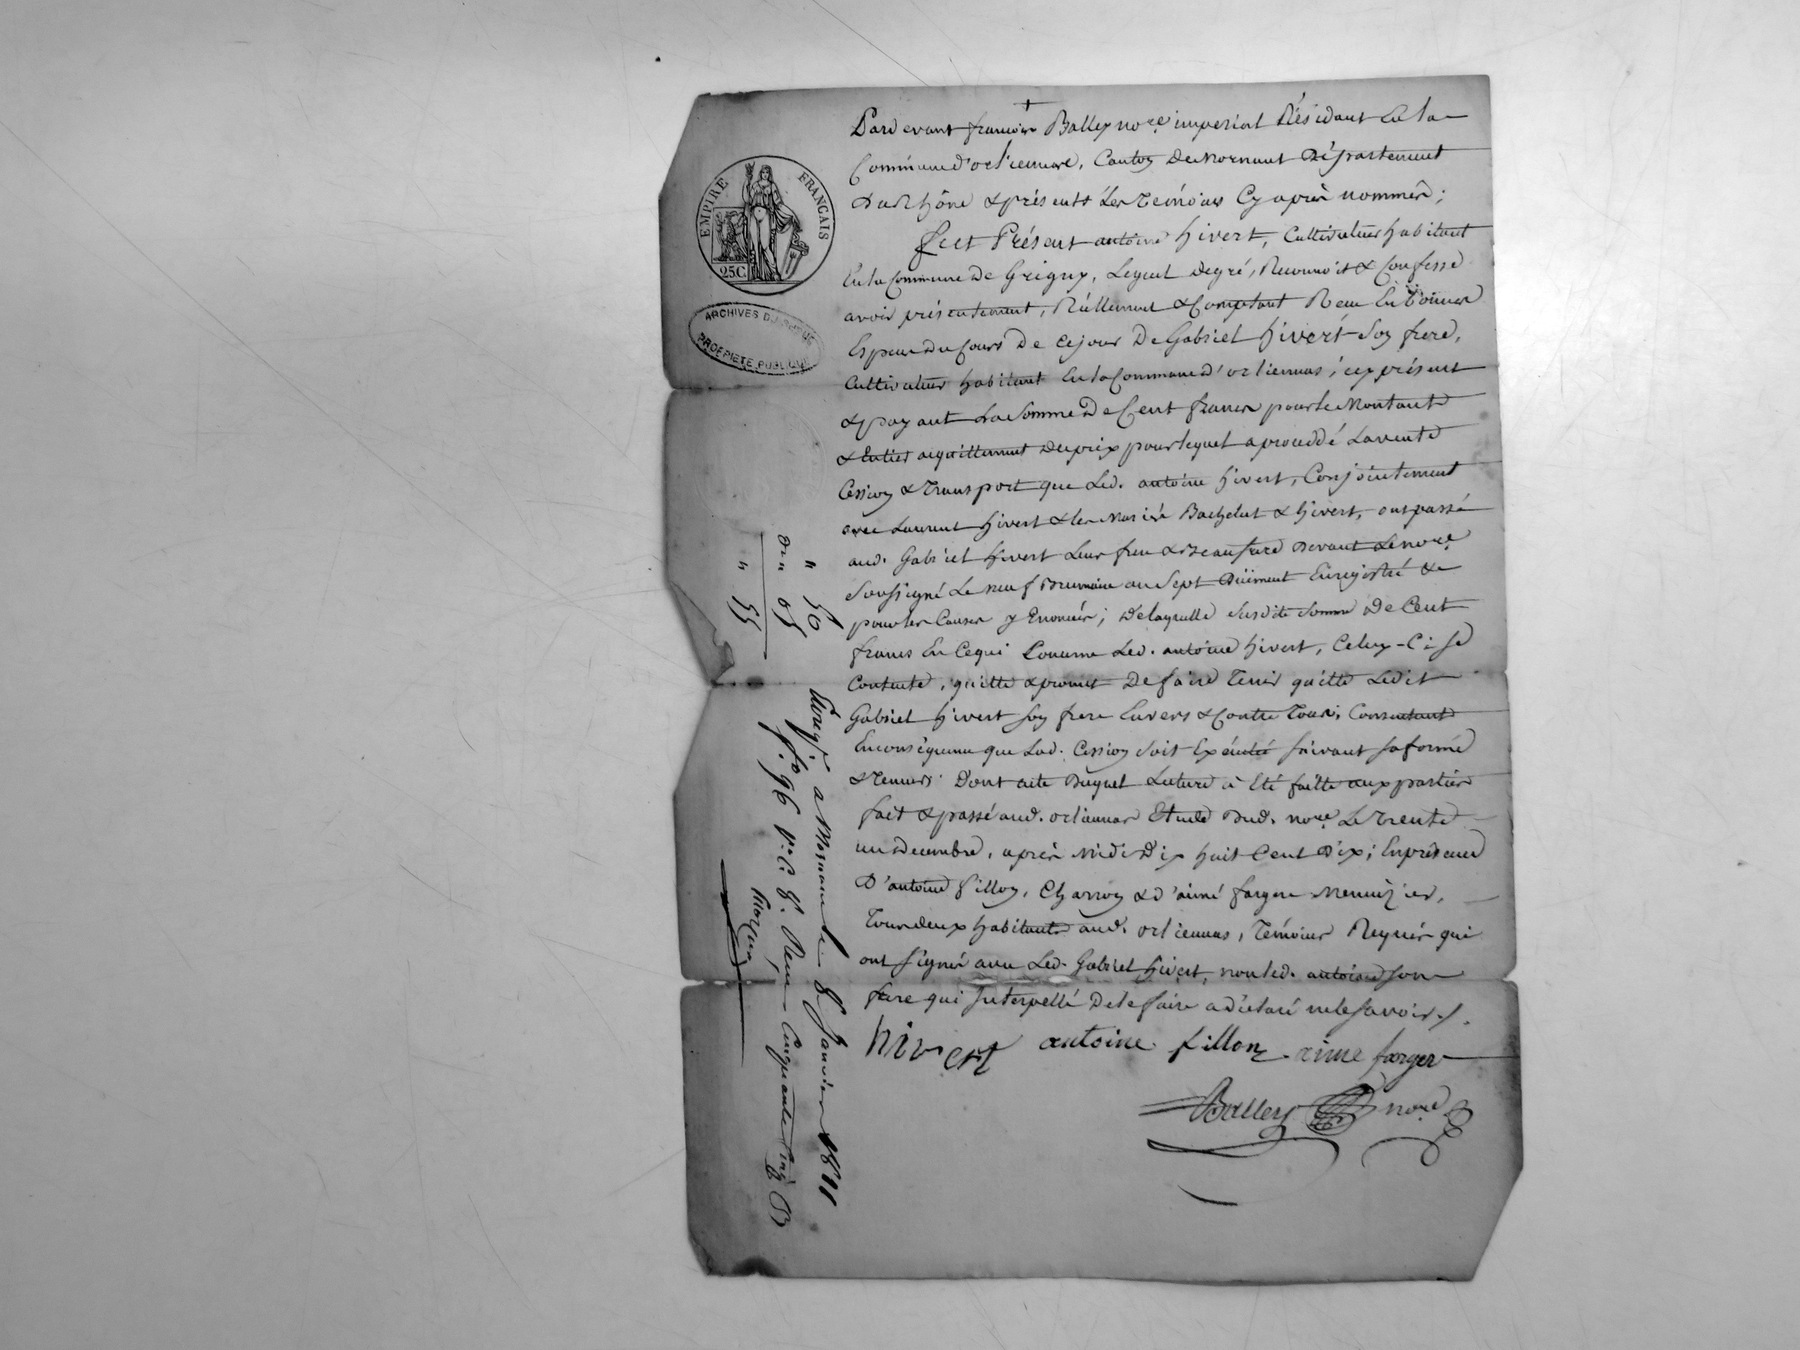 EMPIRE FRANÇAIS
25C.
ARCHIVES DU RHÔNE
PROPRIETE PUBLIQUE
Pardevant françois Balley no.re imperial Résidant En la
Commune d'orliennas, Canton De Mornant Département
Du Rhône & présents Les Témoins Cy après nommés;
fut Présent antoine hivert, Cultivateur habitant
En la Commune De Grigny, Lequel De gré, Reconnoit & Confesse
avoir présentement, Réellement & Comptant Reçu En bonnes
Especes Du Cours De ce jour De Gabriel hivert Son frere,
Cultivateur habitant En la Commune D'orliennas, icy présent
& payant La Somme De Cent francs pour le Montant
& Entier acquittement Du prix pour lequel a procedé La vente
Cession & Transport que Led. antoine hivert, Conjointement
avec Laurent hivert & les Mariés Bachelut & hivert, ont passé
aud. Gabriel hivert Leur frere & Beaufrere Devant Le no.re
Soussigné Le neuf Brumaire an Sept Duëment Enregistré &
pour les Causes y Enoncées; De laquelle Susdite Somme De Cent
francs En Ce qui Concerne Led. antoine hivert, Celuy-Ci Se
Contente, quitte & promet De faire Tenir quitte Ledit
Gabriel hivert Son frere Envers & Contre Tous; Consentant
En conséquence que Lad. Cession Soit Exécutée Suivant Sa forme
& Teneur. Dont acte Duquel Lecture a Eté faitte aux parties
fait & passé aud. orliennas Etude Dud. no.re Le Trente
un Decembre, après Midi Dix huit Cent Dix; En présence
D'antoine fillon, Charron & d'aimé farges Menuizier,
Tous deux habitants aud. orliennas, Témoins Requis qui
ont Signé avec Led. Gabriel hivert, non led. antoine son
frere qui Interpellé De le faire a déclaré ne le Savoir./.
hivert antoine fillon aimé farges
Balley no.re
" 50
" 05
" 55
Enreg.é a Mornant le 8 Janvier 1811
f.o 96 v.o C. 8. Reçu Cinquante cinq C.